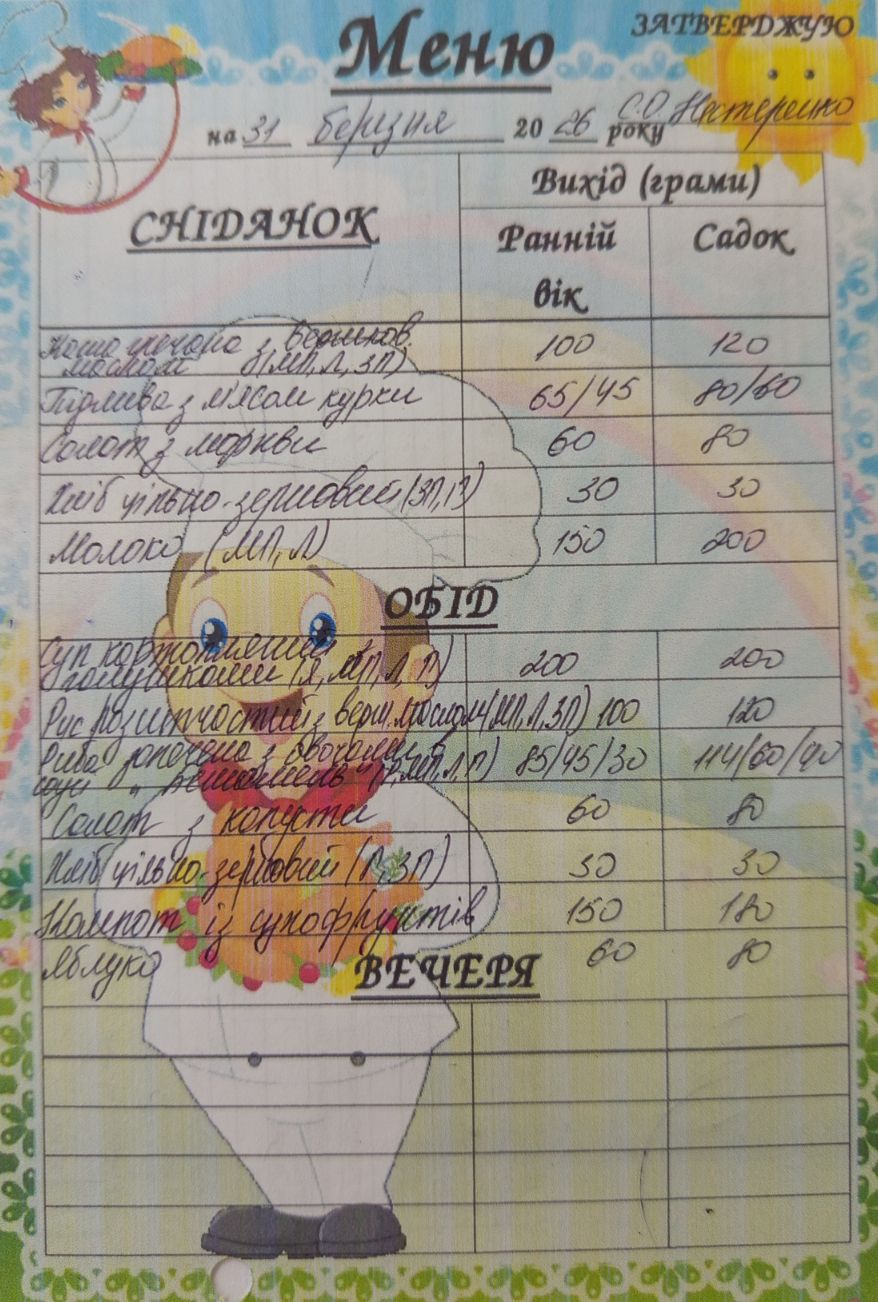 ЗАТВЕРДЖУЮ
Меню
на 31 березня 20 26 року С.О Нестеренко
СНІДАНОК
Вихід (грами)
Ранній вік
Садок
Каша гречана з вершков. 100 120
маслом (МП, Л, ЗП)
Підлива з м'ясом курки 65/45 80/60
Салат з моркви 60 80
Хліб цільно-зерновий (ЗП, П) 30 30
Молоко (МП, Л) 150 200
ОБІД
Суп картопляний з 200 200
галушками (Я, МП, Л, П)
Рис розсипчастий з верш. маслом (МП, Л, ЗП) 100 120
Риба запечена з овочами в 85/45/30 114/60/40
соусі "бешамель" (Р, МП, Л, П)
Салат з капусти 60 80
Хліб цільно-зерновий (П, ЗП) 30 30
Компот із сухофруктів 150 180
Яблуко 60 80
ВЕЧЕРЯ